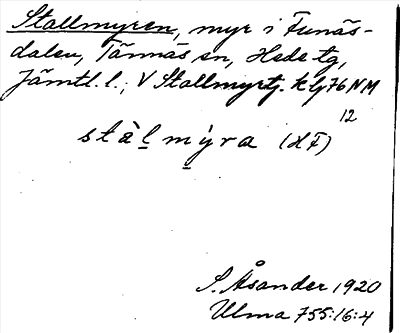 Stallmyren, myr i Funäs-
dalen, Tännäs sn, Hede tg,
Jämtl. l.; V Stallmyrtj. k bj 76 NM
12
stàl myra (HF)
S. Åsander 1920
Ulma 755:16:4